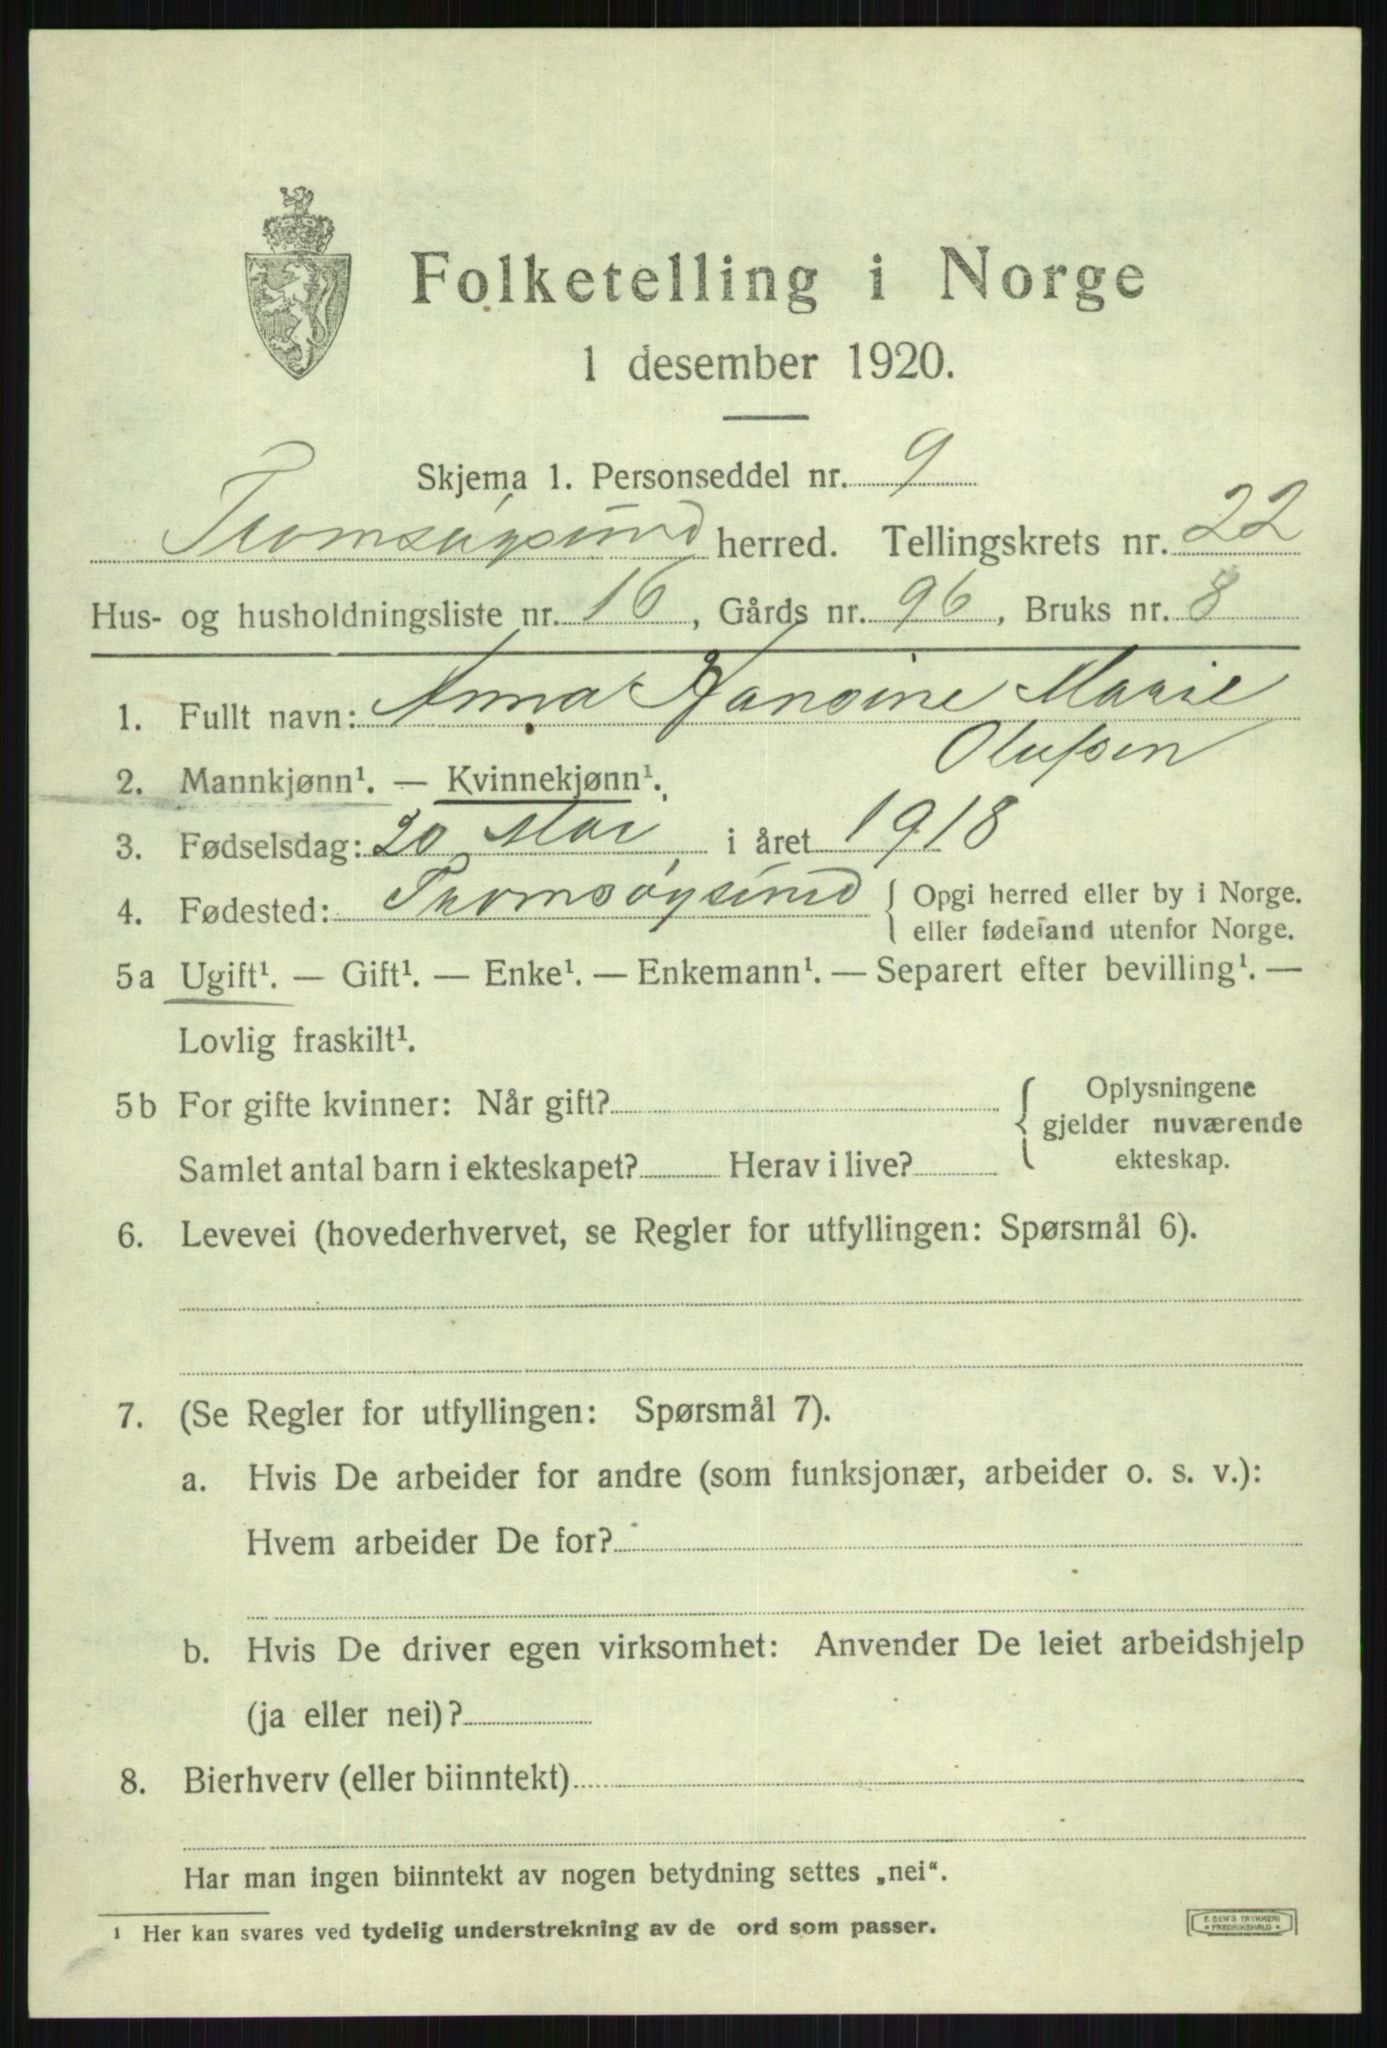 Folketelling i Norge
1 desember 1920.
Skjema 1. Personseddel nr. 9
Tromsøysund herred. Tellingskrets nr. 22
Hus- og husholdningsliste nr. 16, Gårds nr. 96, Bruks nr. 8
1. Fullt navn: Anna Hansine Marie
Olufsen
2. Mannkjønn¹. — Kvinnekjønn¹.
3. Fødselsdag: 20 Mai i året 1918
4. Fødested: Tromsøysund { Opgi herred eller by i Norge.
eller fødeland utenfor Norge.
5a Ugift¹. — Gift¹. — Enke¹. — Enkemann¹. — Separert efter bevilling¹. —
Lovlig fraskilt¹.
5b For gifte kvinner: Når gift? { Oplysningene
gjelder nuværende
Samlet antal barn i ekteskapet? Herav i live? ekteskap.
6. Levevei (hovederhvervet, se Regler for utfyllingen: Spørsmål 6).
7. (Se Regler for utfyllingen: Spørsmål 7).
a. Hvis De arbeider for andre (som funksjonær, arbeider o. s. v.):
Hvem arbeider De for?
b. Hvis De driver egen virksomhet: Anvender De leiet arbeidshjelp
(ja eller nei)?
8. Bierhverv (eller biinntekt)
Har man ingen biinntekt av nogen betydning settes „nei“.
¹ Her kan svares ved tydelig understrekning av de ord som passer.
E. SEM'S TRYKKERI
* FREDRIKSHALD *